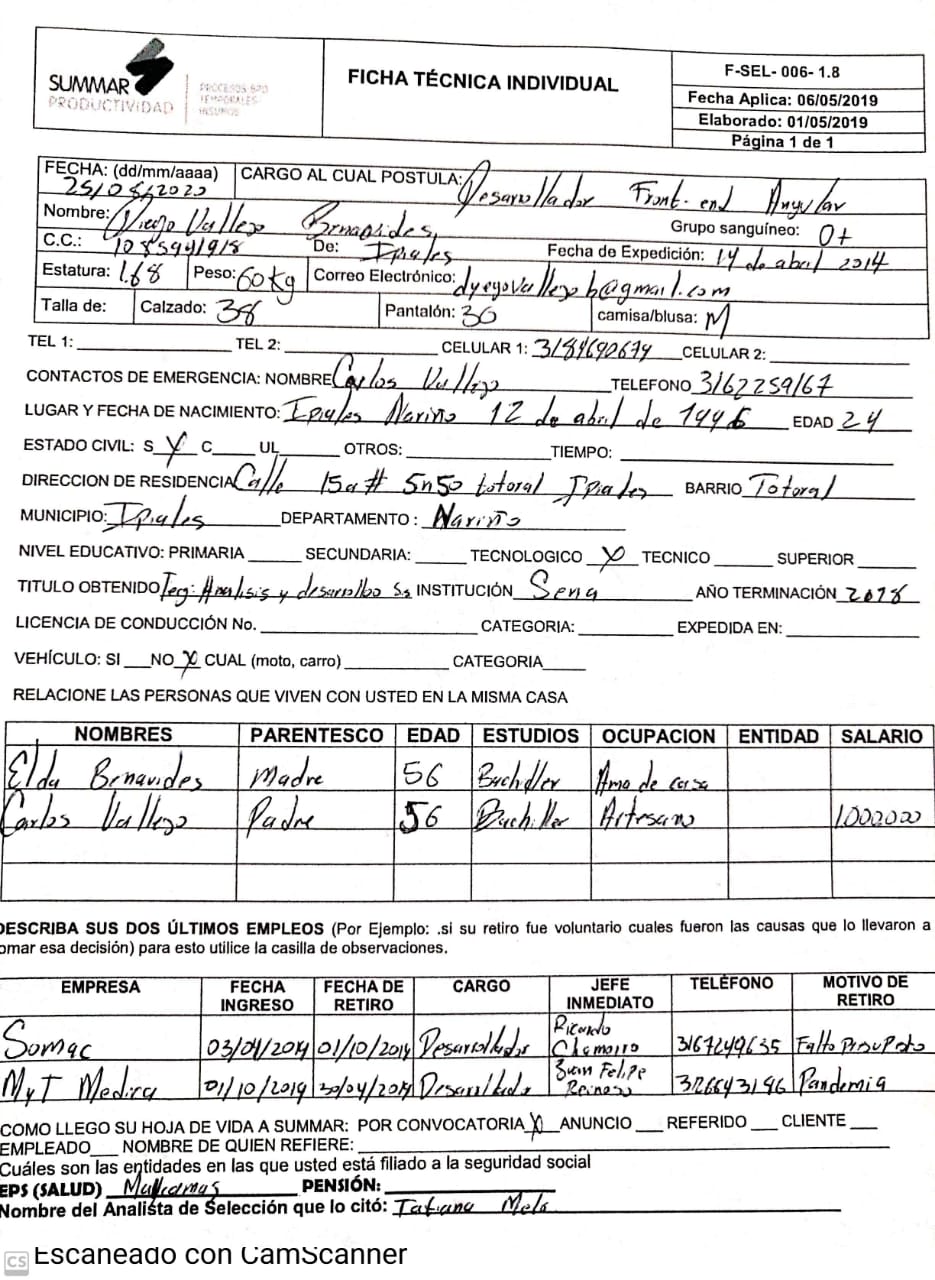 SUMMAR
PRODUCTIVIDAD
PROCESOS BPO
TEMPORALES
INSUMOS
FICHA TÉCNICA INDIVIDUAL
F-SEL- 006- 1.8
Fecha Aplica: 06/05/2019
Elaborado: 01/05/2019
Página 1 de 1
FECHA: (dd/mm/aaaa) CARGO AL CUAL POSTULA: Desarrollador Front-end Angular
25/08/2020
Nombre: Diego Vallejo Benavides Grupo sanguíneo: O+
C.C.: 1085941918 De: Ipiales Fecha de Expedición: 14 de abril 2014
Estatura: 1.68 Peso: 60kg Correo Electrónico: dyegovallejob@gmail.com
Talla de: Calzado: 38 Pantalón: 30 camisa/blusa: M
TEL 1: TEL 2: CELULAR 1: 3184690679 CELULAR 2:
CONTACTOS DE EMERGENCIA: NOMBRE Carlos Vallejo TELEFONO 3162259167
LUGAR Y FECHA DE NACIMIENTO: Ipiales Nariño 12 de abril de 1996 EDAD 24
ESTADO CIVIL: S X C UL OTROS: TIEMPO:
DIRECCION DE RESIDENCIA Calle 15a # 5n50 totoral Ipiales BARRIO Totoral
MUNICIPIO: Ipiales DEPARTAMENTO : Nariño
NIVEL EDUCATIVO: PRIMARIA SECUNDARIA: TECNOLOGICO X TECNICO SUPERIOR
TITULO OBTENIDO Teg: Analisis y desarrollo Ss INSTITUCIÓN Sena AÑO TERMINACIÓN 2018
LICENCIA DE CONDUCCIÓN No. CATEGORIA: EXPEDIDA EN:
VEHÍCULO: SI NO X CUAL (moto, carro) CATEGORIA
RELACIONE LAS PERSONAS QUE VIVEN CON USTED EN LA MISMA CASA
NOMBRES PARENTESCO EDAD ESTUDIOS OCUPACION ENTIDAD SALARIO
Elda Benavides Madre 56 Bachiller Ama de casa
Carlos Vallejo Padre 56 Bachiller Artesano 1.000.000
DESCRIBA SUS DOS ÚLTIMOS EMPLEOS (Por Ejemplo: .si su retiro fue voluntario cuales fueron las causas que lo llevaron a
omar esa decisión) para esto utilice la casilla de observaciones.
EMPRESA FECHA INGRESO FECHA DE RETIRO CARGO JEFE INMEDIATO TELÉFONO MOTIVO DE RETIRO
Somac 03/04/2019 01/10/2019 Desarrollador Ricardo Chamorro 3167249635 Falto Presupesto
MyT Medira 01/10/2019 30/04/2019 Desarrollador Juan Felipe Reinoso 326643196 Pandemia
COMO LLEGO SU HOJA DE VIDA A SUMMAR: POR CONVOCATORIA X ANUNCIO REFERIDO CLIENTE
EMPLEADO NOMBRE DE QUIEN REFIERE:
Cuáles son las entidades en las que usted está filiado a la seguridad social
EPS (SALUD) Mallamas PENSIÓN:
Nombre del Analista de Selección que lo citó: Tatiana Melo
CS Escaneado con CamScanner